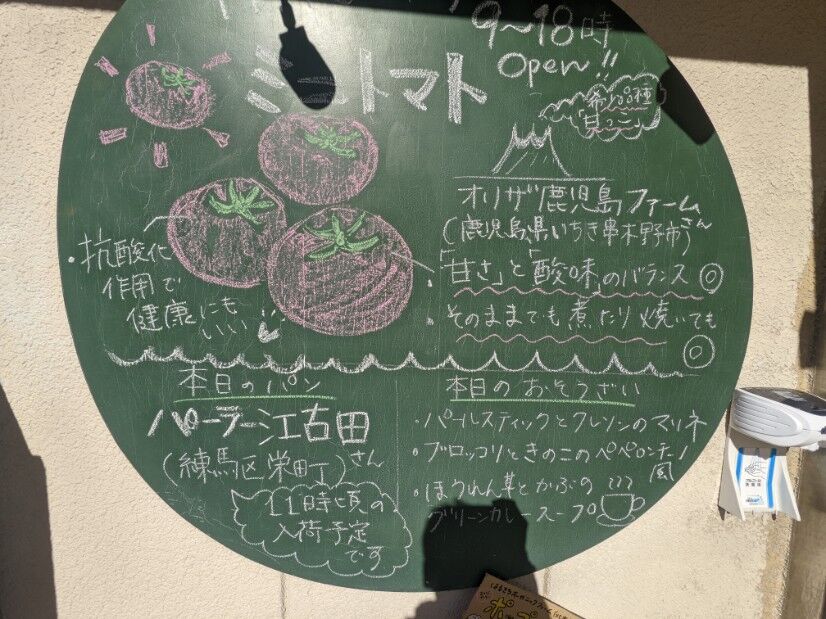 9〜18時
Open!!
トマト
希少品種
「甘っこ」
オリザ鹿児島ファーム
(鹿児島県いちき串木野市)さん
・「甘さ」と「酸味」のバランス◎
・そのままでも煮たり焼いても◎
・抗酸化
作用で
健康にも
いい
本日のパン
パーラー江古田
(練馬区栄町)さん
11時頃の
入荷予定
です
本日のおそうざい
・パールスティックとクレソンのマリネ
・ブロッコリときのこのペペロンチーノ
風
・ほうれん草とかぶの
グリーンカレースープ